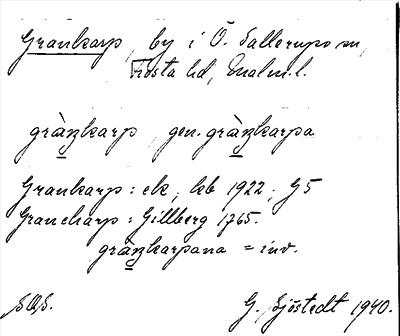 Grankarp, by i Ö. Sallerups sn,
Frosta hd, Malm.l.
grànkarp, gen. grànkarpa
Grankarp: ek, kb 1922; G5
Granekarp: Gillberg 1765.
grànkarpana = inv.
G. Sjöstedt 1940.